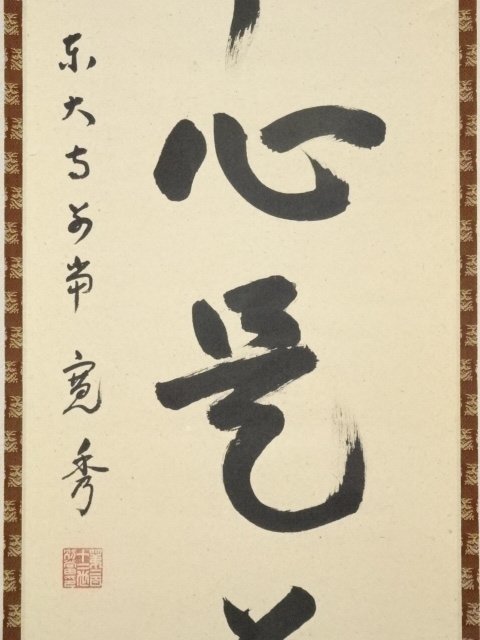 心是
東大寺別當 寛秀